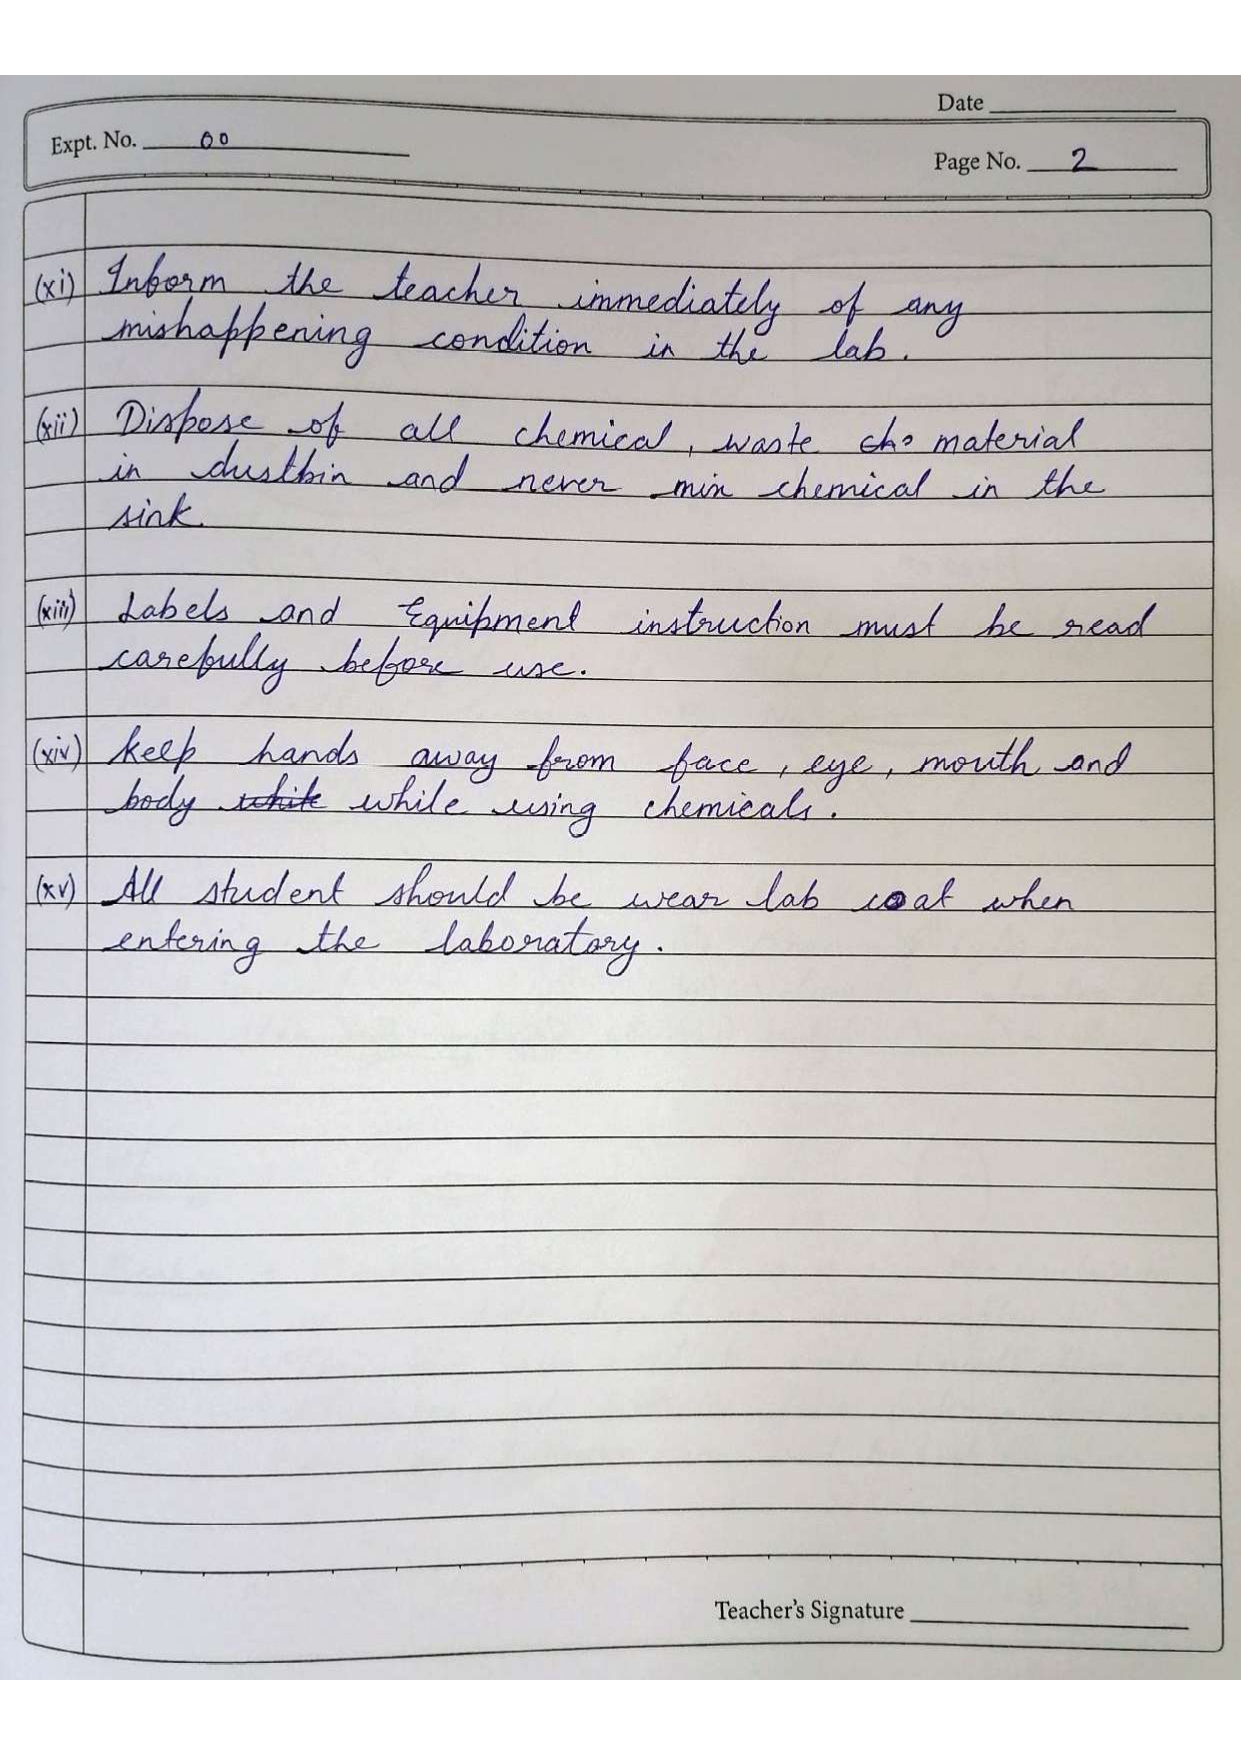 Date
Expt. No. 00
Page No. 2
(xi) Inform the teacher immediately of any
mishappening condition in the lab.
(xii) Dispose of all chemical, waste material
in dustbin and never mix chemical in the
sink.
(xiii) Labels and Equipment instruction must be read
carefully before use.
(xiv) keep hands away from face, eye, mouth and
body white while using chemicals.
(xv) All student should be wear lab coat when
entering the laboratory.
Teacher's Signature